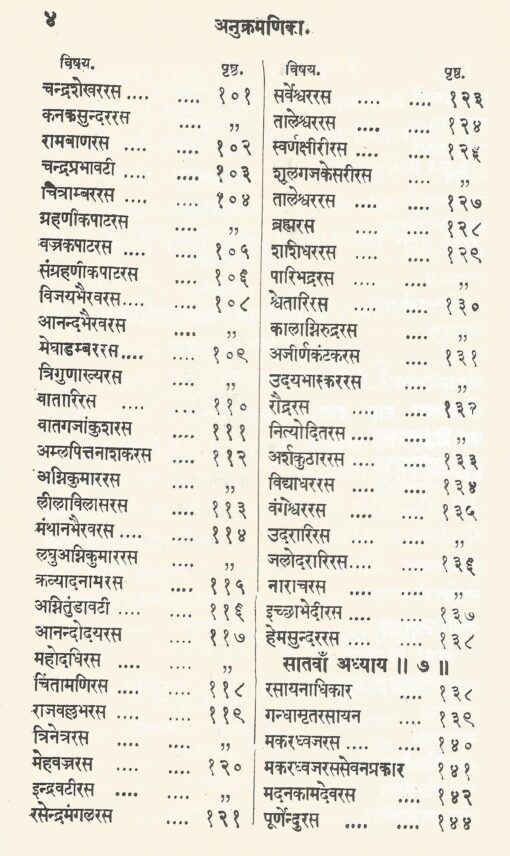 ४
अनुक्रमणिका.
विषय. पृष्ठ.
चन्द्रशेखररस .... .... १०१
कनकसुन्दररस .... ,,
रामबाणरस .... .... १०२
चन्द्रप्रभावटी .... .... १०३
चित्राम्बररस .... .... १०४
ग्रहणीकपाटरस .... ,,
वज्रकपाटरस .... .... १०५
संग्रहणीकपाटरस .... १०६
विजयभैरवरस.... .... १०८
आनन्दभैरवरस .... ,,
मेघाडम्बररस.... .... १०९
त्रिगुणाख्यरस .... ,,
वातारिरस .... ... ११०
वातगजांकुशरस .... १११
अम्लपित्तनाशकरस .... ११२
अग्निकुमाररस .... ,,
लीलाविलासरस .... ११३
मंथानभैरवरस .... .... ११४
लघुअग्निकुमाररस .... ,,
क्रव्यादनामरस .... ११५
अग्नितुंडावटी .... .... ११६
आनन्दोदयरस .... ११७
महोदधिरस .... .... ,,
चिंतामणिरस .... .... ११८
राजवल्लभरस .... .... ११९
त्रिनेत्ररस .... .... ,,
मेहवज्ररस .... .... १२०
इन्द्रवटीरस .... .... ,,
रसेन्द्रमंगलरस .... १२१
विषय. पृष्ठ.
सर्वेश्वररस .... .... १२३
तालेश्वररस .... .... १२४
स्वर्णक्षीरीरस .... .... १२६
शूलगजकेसरीरस .... ,,
तालेश्वररस .... .... १२७
ब्रह्मरस .... .... १२८
शशिधररस .... .... १२९
पारिभद्ररस .... .... ,,
श्वेतारिरस .... .... १३०
कालाग्निरुद्ररस .... ,,
अजीर्णकंटकरस .... १३१
उदयभास्कररस .... ,,
रौद्ररस .... .... १३२
नित्योदितरस .... .... ,,
अर्शकुठाररस .... .... १३३
विद्याधररस .... .... १३४
वंगेश्वररस .... .... १३५
उदरारिरस .... .... ,,
जलोदरारिरस.... .... १३६
नाराचरस .... .... ,,
इच्छाभेदीरस .... .... १३७
हेमसुन्दररस .... .... १३८
सातवाँ अध्याय ॥ ७ ॥
रसायनाधिकार .... १३८
गन्धामृतरसायन .... १३९
मकरध्वजरस .... .... १४०
मकरध्वजरससेवनप्रकार १४१
मदनकामदेवरस .... १४२
पूर्णेन्दुरस .... .... १४४